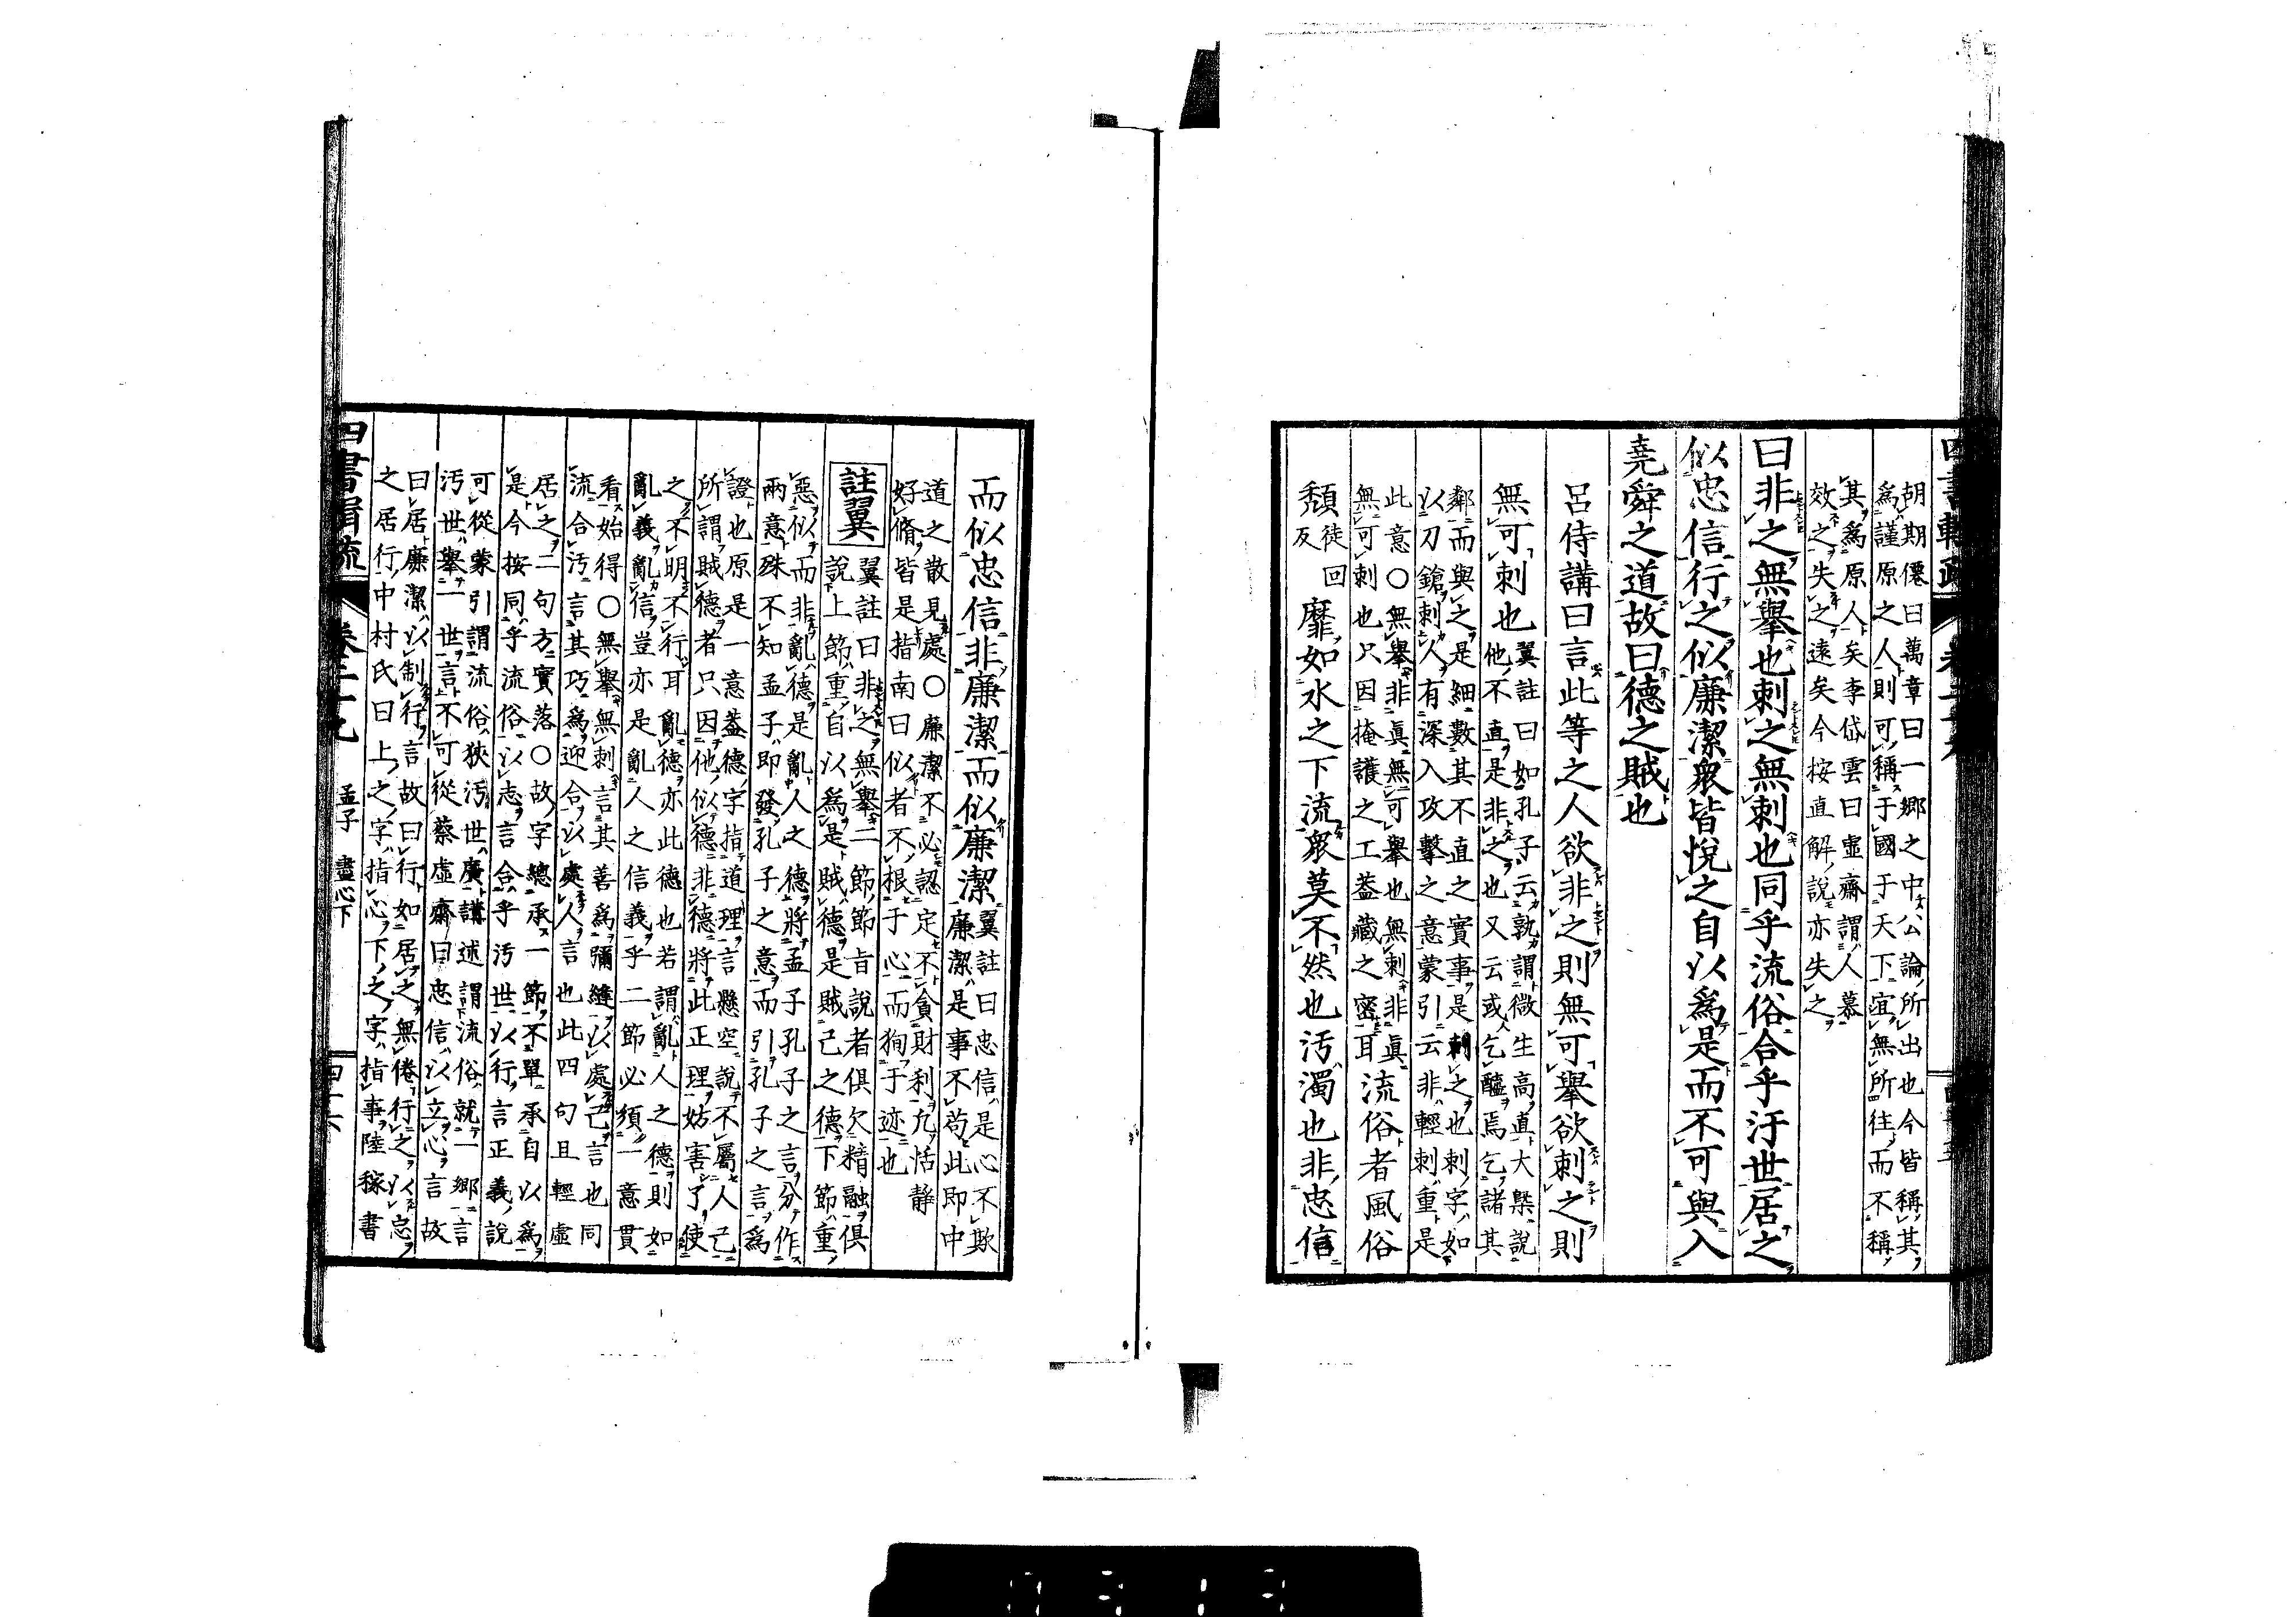 胡期僊曰萬章曰一鄉之中公論所出也今皆稱其
爲謹原之人則可稱于國于天下宜無所往而不稱
其爲原人矣李岱雲曰虛齋謂人慕
效之失之遠矣今按直解說亦失之
曰非之無舉也刺之無刺也同乎流俗合乎汙世居之
似忠信行之似廉潔衆皆悅之自以爲是而不可與入
堯舜之道故曰德之賊也
呂侍講曰言此等之人欲非之則無可舉欲刺之則
無可刺也
翼註曰如孔子云孰謂微生高直大槩說
他不直是非之也又云或人乞醯焉乞諸其
鄰而與之是細數其不直之實事是刺之也刺字如
以刀鎗刺人有深入攻擊之意蒙引云非輕刺重是
此意○無舉非眞無可舉也無刺非眞
無可刺也只因掩護之工葢藏之密耳
流俗者風俗
頽
徒回
反
靡如水之下流衆莫不然也汚濁也非忠信
而似忠信非廉潔而似廉潔
翼註曰忠信是心不欺
廉潔是事不苟此即中
道之散見處○廉潔不必認定不貪財利凡恬靜
好脩皆是指南曰似者不根于心而狥于迹也
註翼
翼註曰非之無舉二節節旨說者俱欠精融俱
說上節重自以爲是賊德是賊己之德下節重
惡似而非亂德是亂人之德將孟子孔子之言分作
兩意殊不知孟子即發孔子之意而引孔子之言爲
證也原是一意葢德字指道理言懸空說不屬人己
所謂賊德者只因他似德非德將此正理妨害了使
之不明不行耳亂德亦此德也若謂亂人之德則如
亂義亂信豈亦是亂人之信義乎二節必須一意貫
看始得○無舉無刺言其善爲彌縫以處己言也同
流合汚言其巧爲迎合以處人言也此四句且輕虛
居之二句方實落○故字總承一節不單承自以爲
是今按同乎流俗以志言合乎汚世以行言正義說
可從蒙引謂流俗狹汚世廣講述謂流俗就一鄉言
汚世舉一世言不可從蔡虛齋曰忠信以立心言故
曰居廉潔以制行言故曰行如居之無倦行之以忠
之居行中村氏曰上之字指心下之字指事陸稼書
四書輯疏
卷二十九
孟子 盡心下
四十六